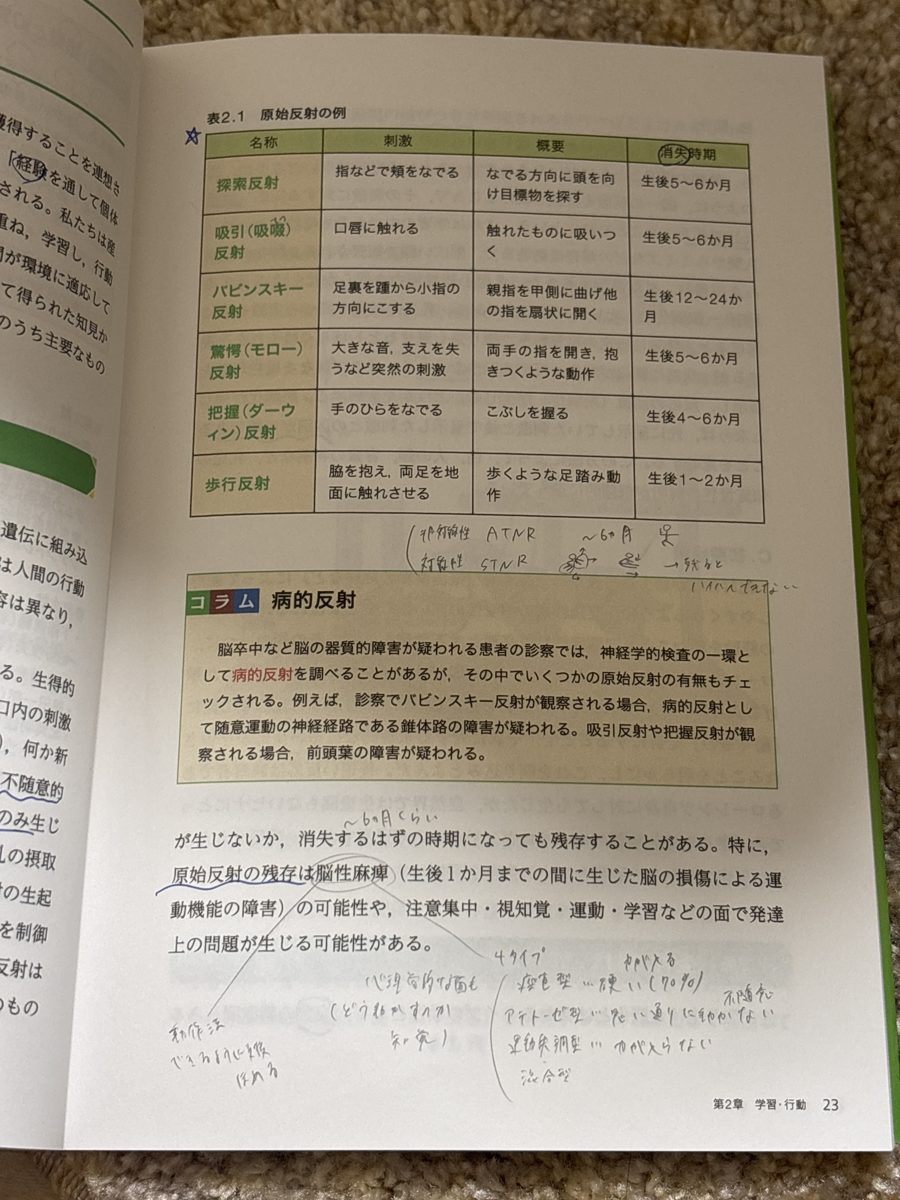 獲得することを連想さ
「経験を通して個体
される。私たちは産
重ね，学習し，行動
間が環境に適応して
て得られた知見か
のうち主要なもの
遺伝に組み込
は人間の行動
容は異なり，
る。生得的
口内の刺激
），何か新
不随意的
のみ生じ
乳の摂取
の生起
を制御
反射は
のもの
表2.1 原始反射の例
名称 刺激 概要 消失時期
探索反射 指などで頬をなでる なでる方向に頭を向 生後5～6か月
け目標物を探す
吸引（吸啜） 口唇に触れる 触れたものに吸いつ 生後5～6か月
反射 く
バビンスキー 足裏を踵から小指の 親指を甲側に曲げ他 生後12～24か
反射 方向にこする の指を扇状に開く 月
驚愕（モロー） 大きな音，支えを失 両手の指を開き，抱 生後5～6か月
反射 うなど突然の刺激 きつくような動作
把握（ダーウ 手のひらをなでる こぶしを握る 生後4～6か月
ィン）反射
歩行反射 脇を抱え，両足を地 歩くような足踏み動 生後1～2か月
面に触れさせる 作
非対称性 ATNR ～6ヵ月
対称性 STNR →残ると
ハイハイできない
コラム 病的反射
脳卒中など脳の器質的障害が疑われる患者の診察では，神経学的検査の一環と
して病的反射を調べることがあるが，その中でいくつかの原始反射の有無もチェ
ックされる。例えば，診察でバビンスキー反射が観察される場合，病的反射とし
て随意運動の神経経路である錐体路の障害が疑われる。吸引反射や把握反射が観
察される場合，前頭葉の障害が疑われる。
～6ヵ月くらい
が生じないか，消失するはずの時期になっても残存することがある。特に，
原始反射の残存は脳性麻痺（生後1か月までの間に生じた脳の損傷による運
動機能の障害）の可能性や，注意集中・視知覚・運動・学習などの面で発達
上の問題が生じる可能性がある。
4タイプ
心理学的な面も
（どう動かすか
知覚）
動作法
力が入る
痙直型…硬い（70%）
不随意
アテトーゼ型…思い通りに動かない
運動失調型…力が入らない
混合型
第2章 学習・行動 23